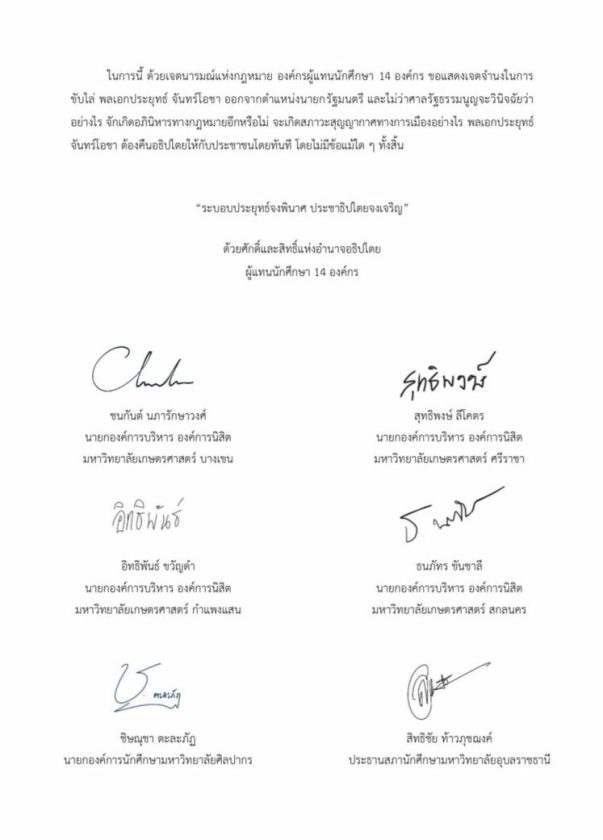 ในการนี้ ด้วยเจตนารมณ์แห่งกฎหมาย องค์กรผู้แทนนักศึกษา 14 องค์กร ขอแสดงเจตจำนงในการ
ขับไล่ พลเอกประยุทธ์ จันทร์โอชา ออกจากตำแหน่งนายกรัฐมนตรี และไม่ว่าศาลรัฐธรรมนูญจะวินิจฉัยว่า
อย่างไร จักเกิดอภินิหารทางกฎหมายอีกหรือไม่ จะเกิดสภาวะสุญญากาศทางการเมืองอย่างไร พลเอกประยุทธ์
จันทร์โอชา ต้องคืนอธิปไตยให้กับประชาชนโดยทันที โดยไม่มีข้อแม้ใด ๆ ทั้งสิ้น
“ระบอบประยุทธ์จงพินาศ ประชาธิปไตยจงเจริญ”
ด้วยศักดิ์และสิทธิ์แห่งอำนาจอธิปไตย
ผู้แทนนักศึกษา 14 องค์กร
สุทธิพงษ์
ชนกันต์ นภารักษาวงศ์
สุทธิพงษ์ ลีโคตร
นายกองค์การบริหาร องค์การนิสิต
นายกองค์การบริหาร องค์การนิสิต
มหาวิทยาลัยเกษตรศาสตร์ บางเขน
มหาวิทยาลัยเกษตรศาสตร์ ศรีราชา
อิทธิพันธ์
อิทธิพันธ์ ขวัญดำ
ธนภัทร ขันชาลี
นายกองค์การบริหาร องค์การนิสิต
นายกองค์การบริหาร องค์การนิสิต
มหาวิทยาลัยเกษตรศาสตร์ กำแพงแสน
มหาวิทยาลัยเกษตรศาสตร์ สกลนคร
ชิษณุชา ตะละภัฏ
สิทธิชัย ท้าวภุชฌงค์
นายกองค์การนักศึกษามหาวิทยาลัยศิลปากร
ประธานสภานักศึกษามหาวิทยาลัยอุบลราชธานี